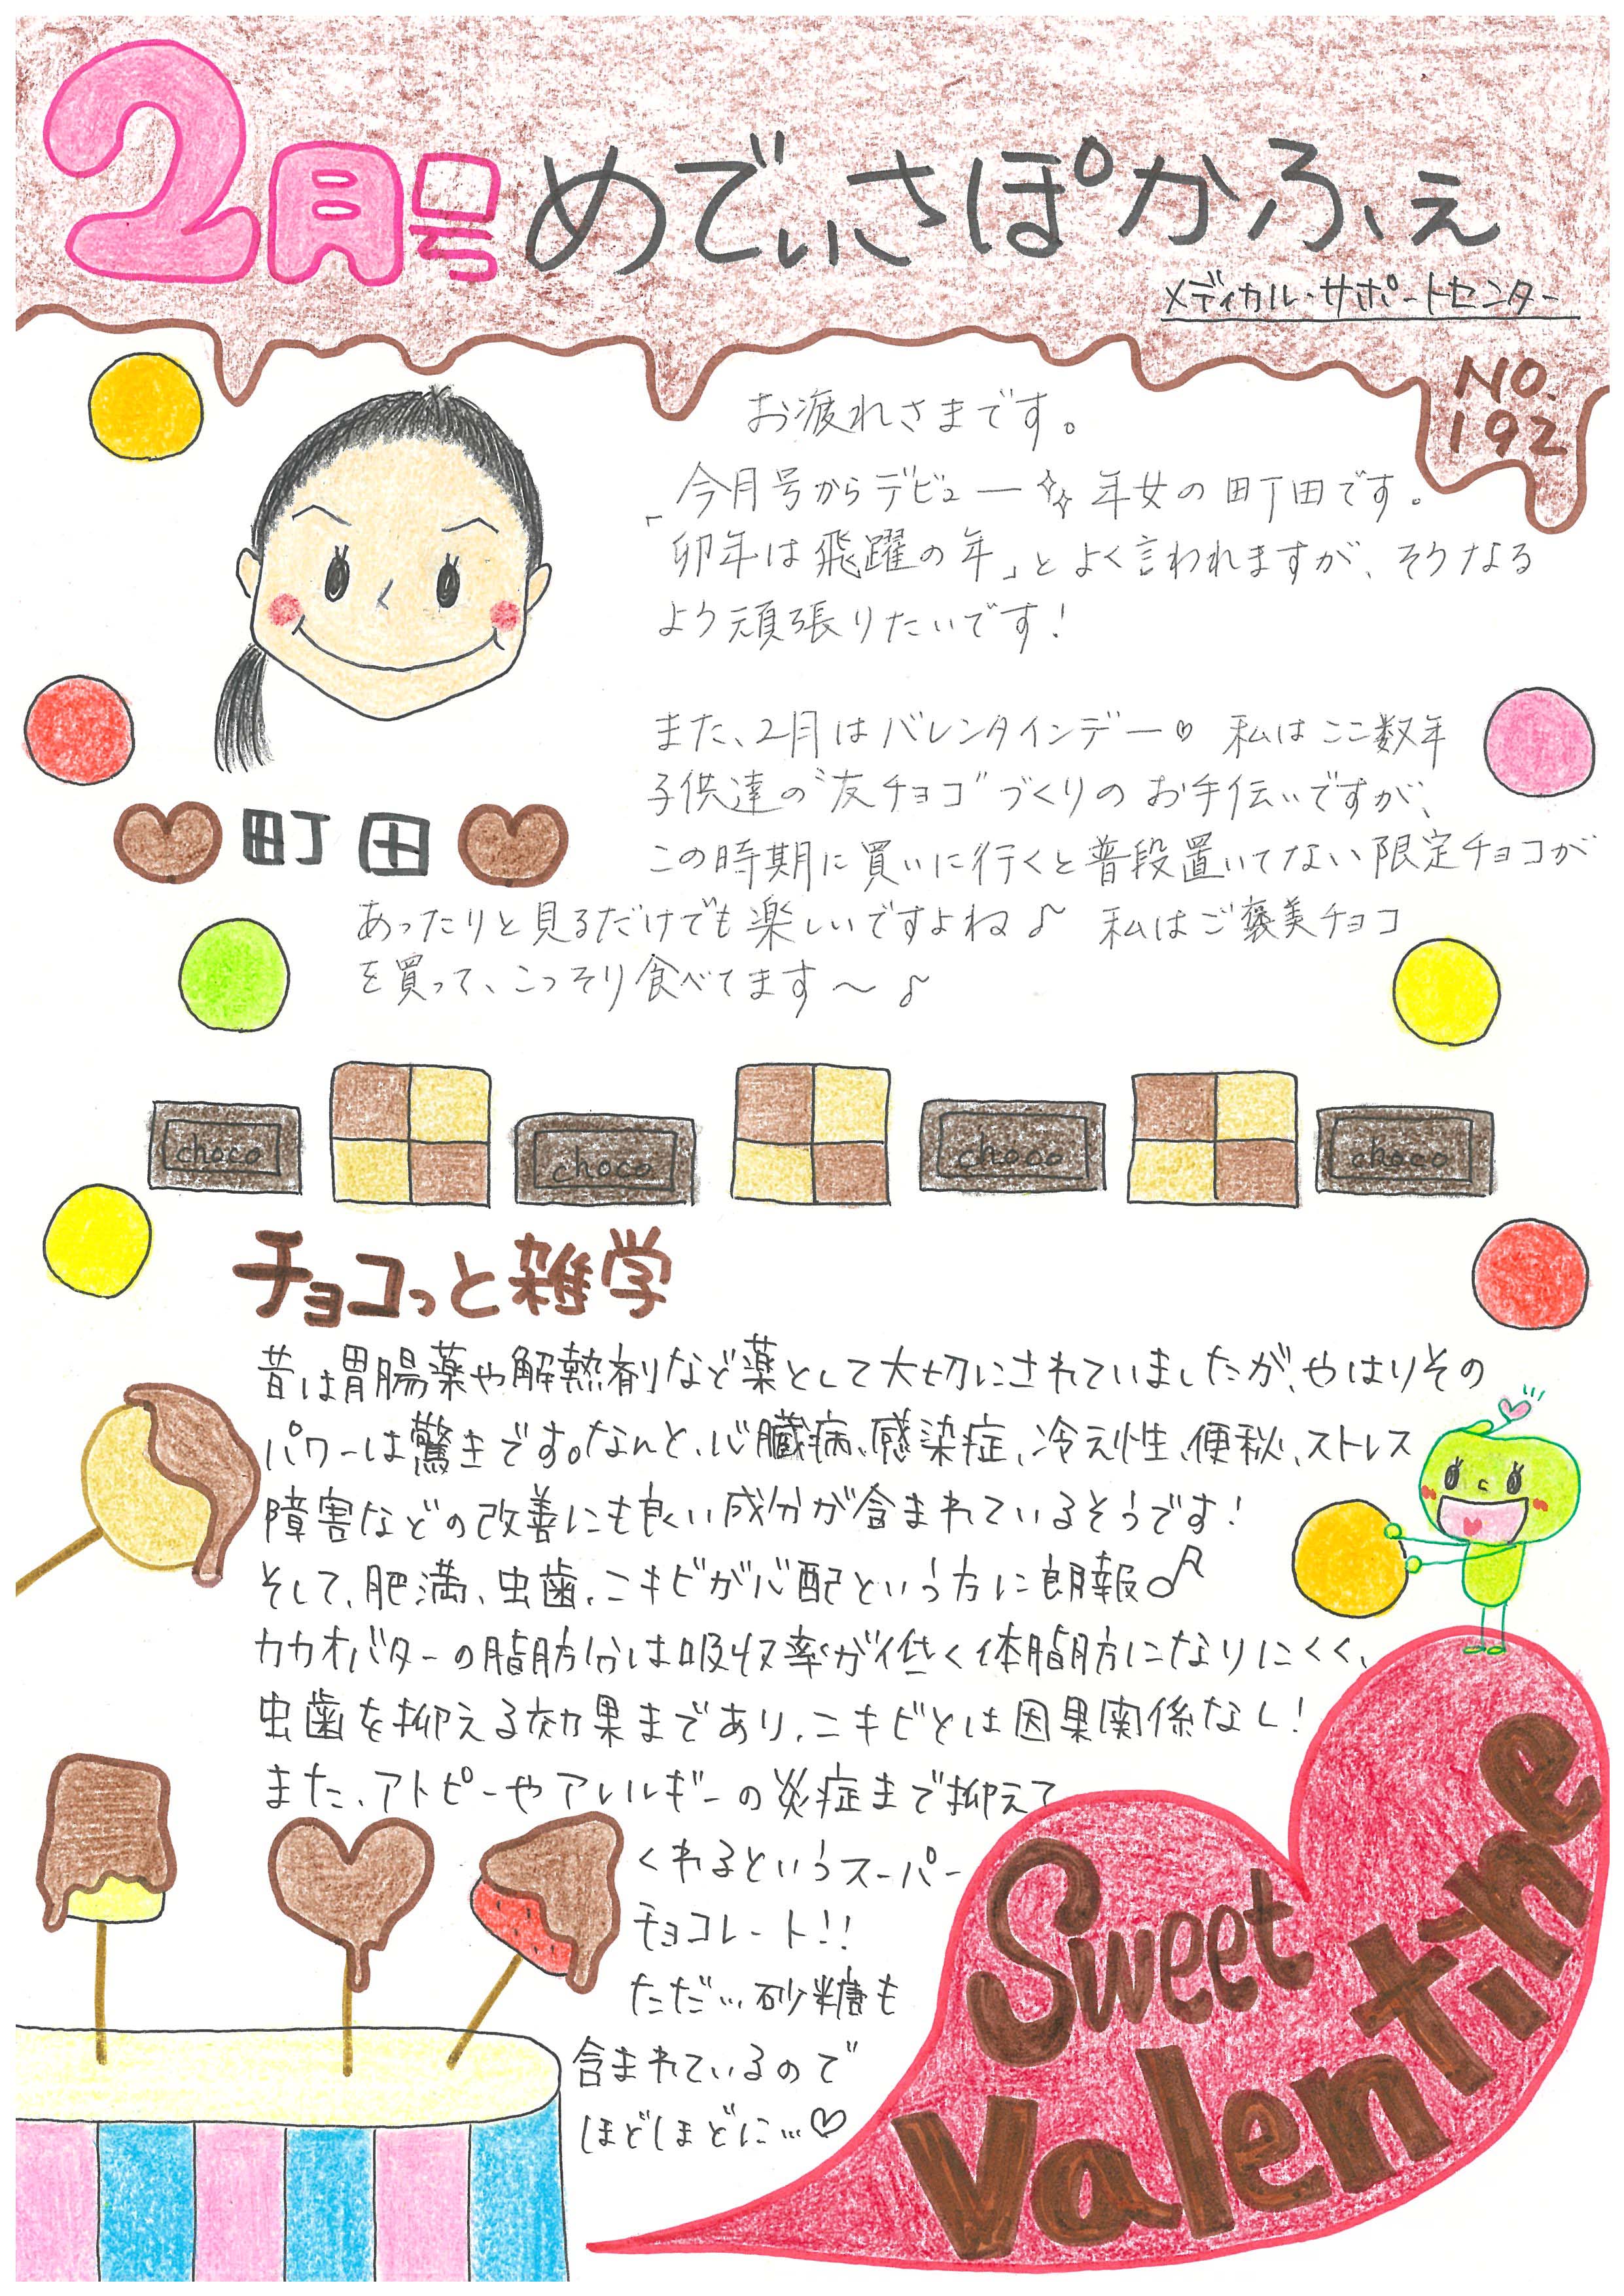 2月号 めでぃさぽかふぇ
メディカル・サポートセンター
NO.
192
お疲れさまです。
今月号からデビュー 年女の町田です。
「卯年は飛躍の年」とよく言われますが、そうなる
よう頑張りたいです!
また、2月はバレンタインデー♡ 私はここ数年
子供達の"友チョコ"づくりのお手伝いですが、
この時期に買いに行くと普段置いてない限定チョコが
あったりと見るだけでも楽しいですよね♪ 私はご褒美チョコ
を買って、こっそり食べてます〜♪
町田
choco
choco
choco
choco
チョコっと雑学
昔は胃腸薬や解熱剤など薬として大切にされていましたが、やはりその
パワーは驚きです。なんと、心臓病、感染症、冷え性、便秘、ストレス
障害などの改善にも良い成分が含まれているそうです!
そして、肥満、虫歯、ニキビが心配という方に朗報♪
カカオバターの脂肪分は吸収率が低く体脂肪になりにくく、
虫歯を抑える効果まであり、ニキビとは因果関係なし!
また、アトピーやアレルギーの炎症まで抑えて
くれるというスーパー
チョコレート!!
ただ…砂糖も
含まれているので
ほどほどに…♡
Sweet
Valentine